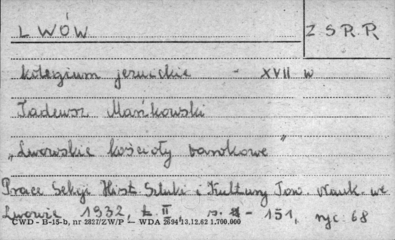 LWÓW
Z S R R
kolegium jezuickie - XVII w
Tadeusz Mańkowski
„Lwowskie kościoły barokowe"
Prace Sekcji Hist. Sztuki i Kultury Tow. Nauk. we
Lwowie 1932, t. II s. - 151, ryc. 68
CWD - B-15-b, nr 2827/ZW/P — WDA 2694 13.12.62 1.700.000